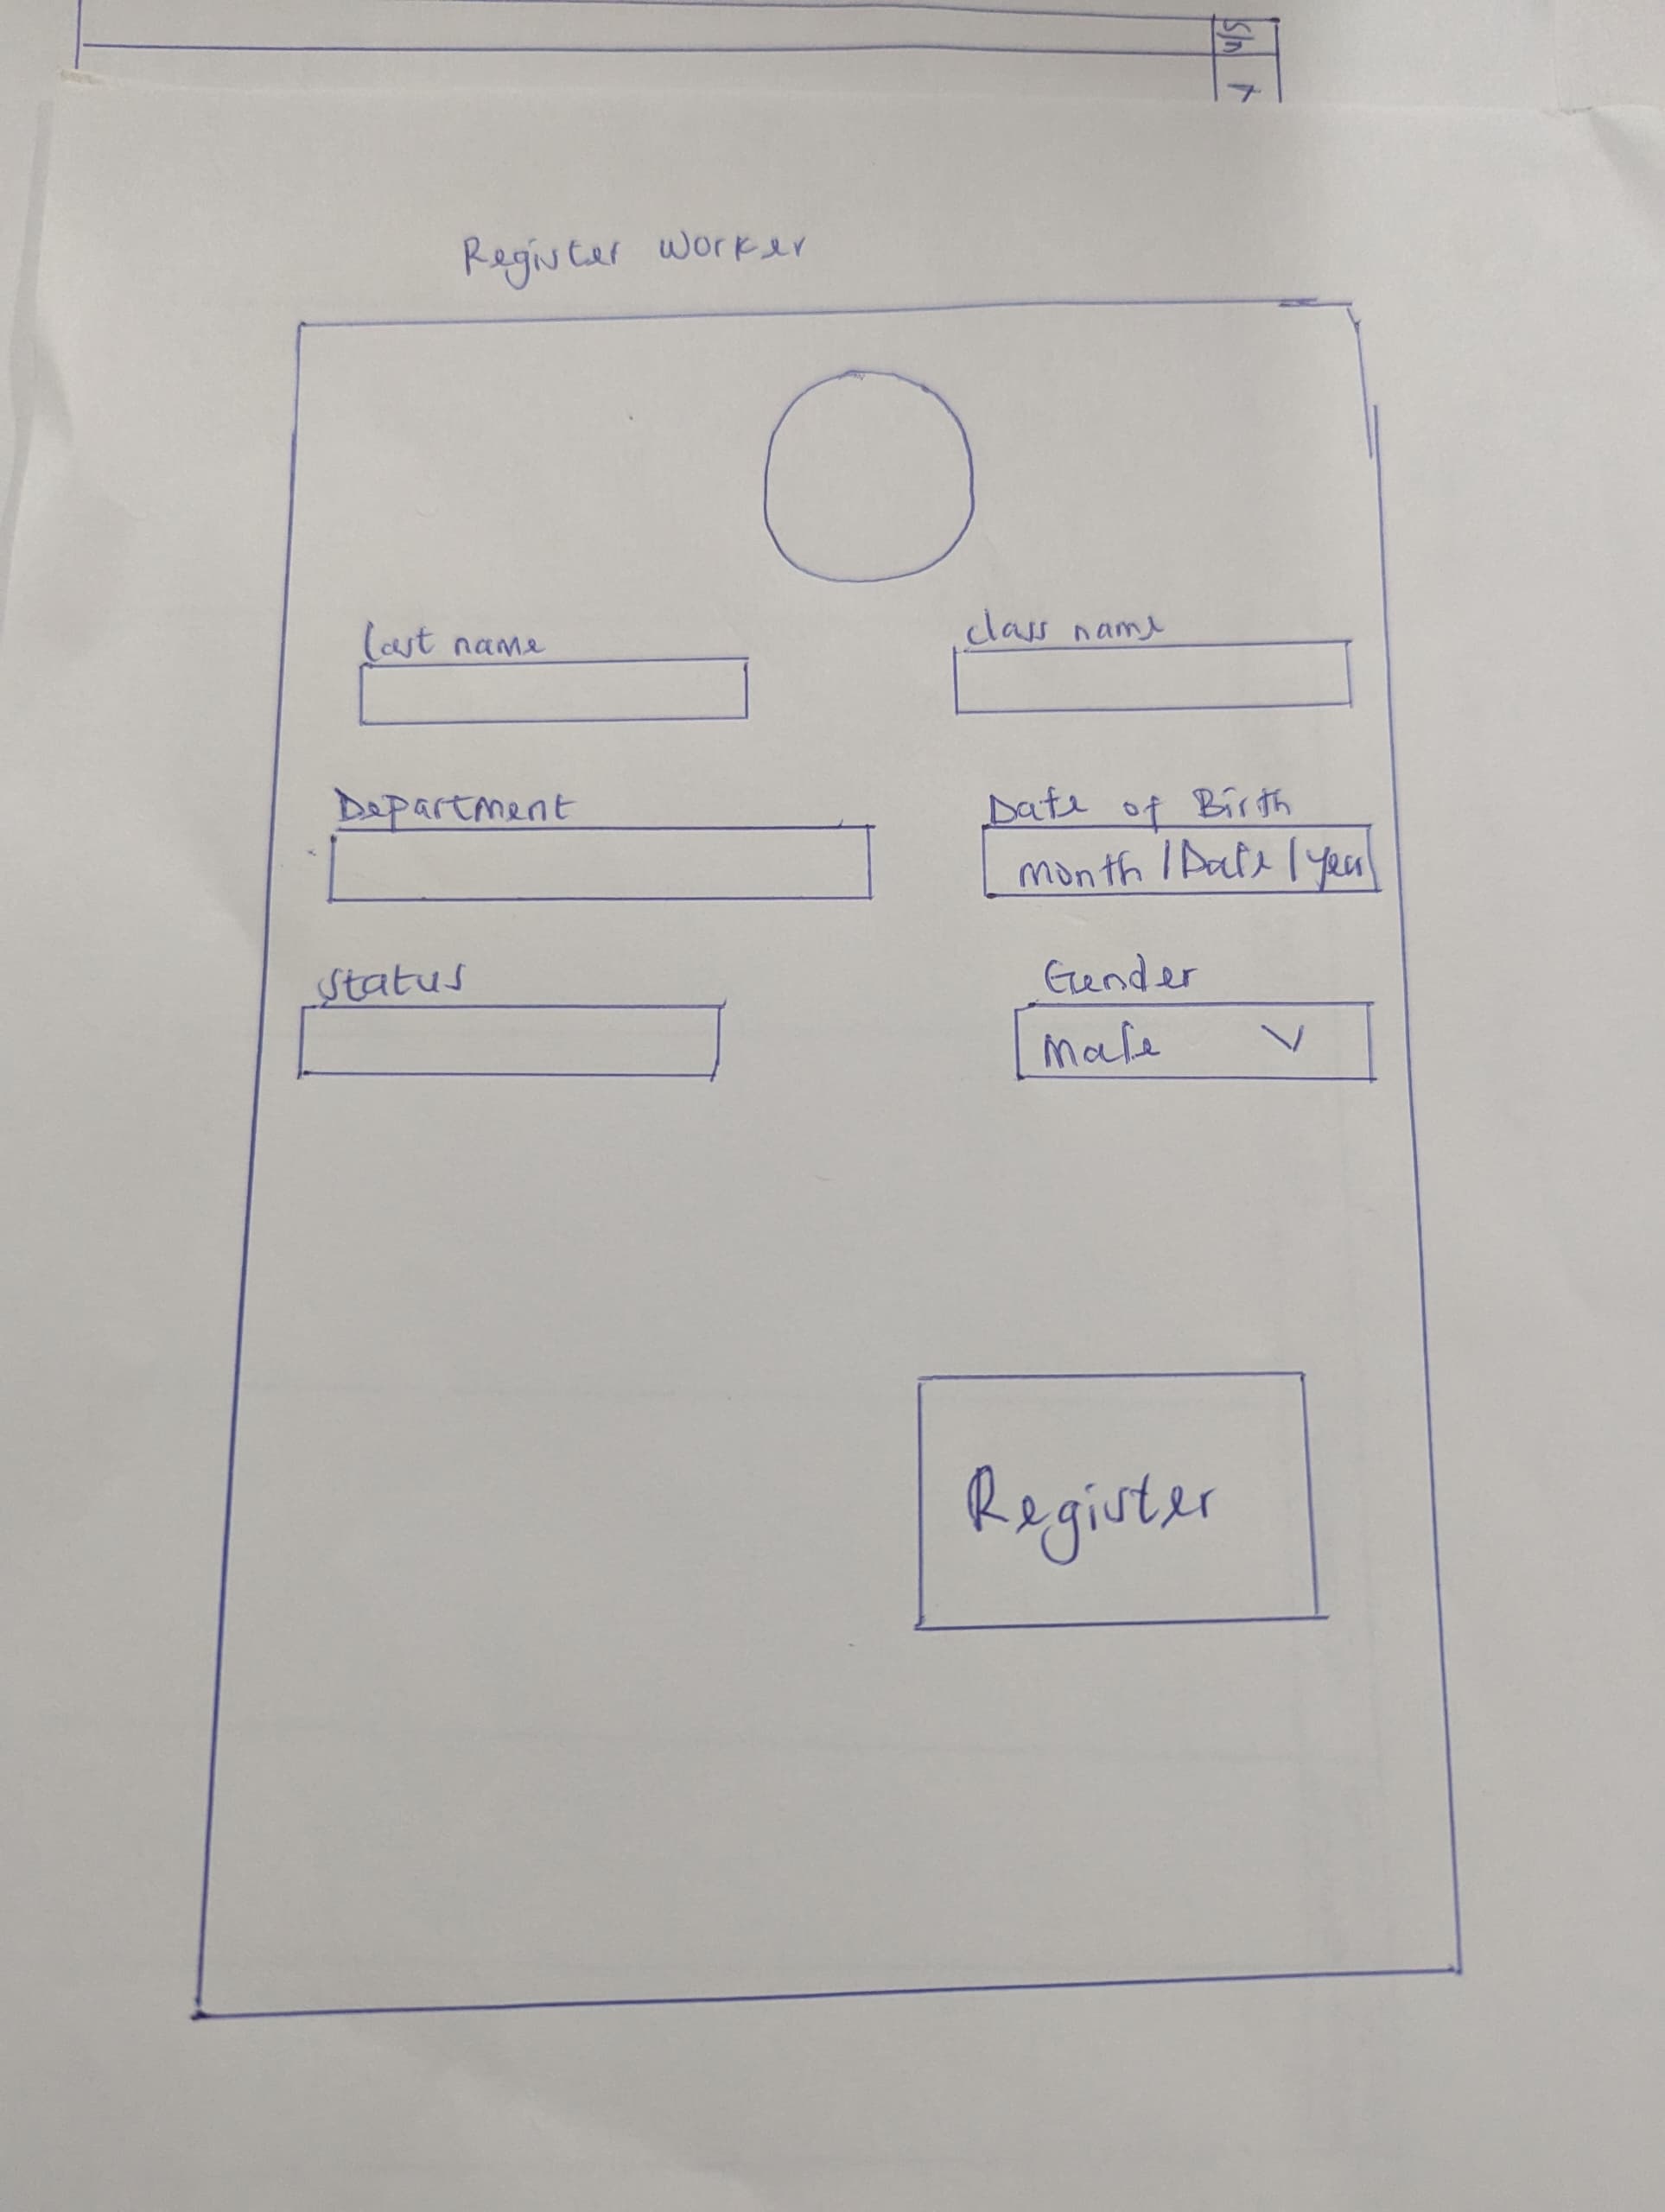 S/n
Register Worker
last name
class name
Department
Date of Birth
month / Date / year
status
Gender
Male
Register